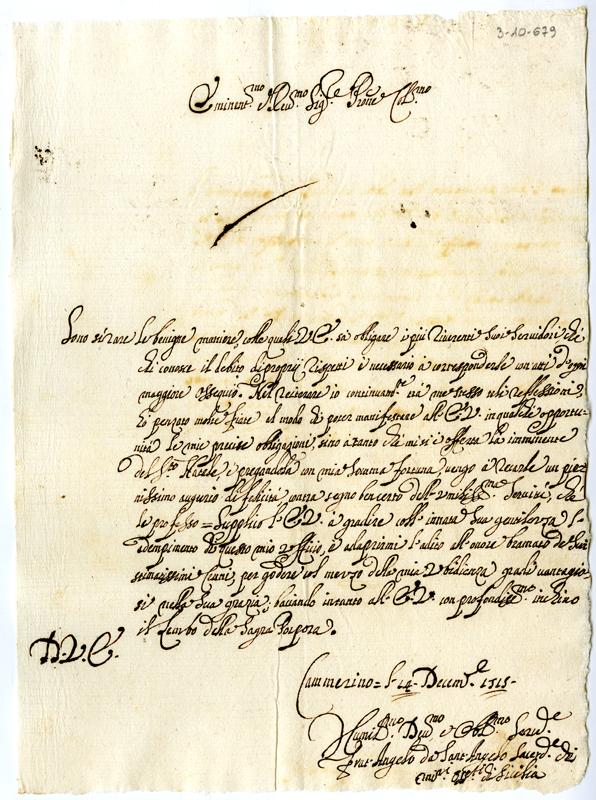 3-10-679
Eminent.mo e Reu.mo Sig.re Prone Col.mo
Sono sì rare le benigne maniere, colle quali V.E. sà obligare i più riuerenti suoi Seruidori, che
chi conosce il debito di proprij rispetti è necessario à corrisponderle con atti d'ogni
maggiore ossequio. Nel reiterare io continuam.te trà me stesso tali reflessioni,
hò pensato molte fiate al modo di poter manifestare all'E.V. in qualche opportu-
nità le mie precise obligazioni, sino à tanto che mi si è offerta la imminente
del S.mo Natale, e pregandola con mia somma fortuna, vengo à recarle un pie-
nissimo augurio di felicità, contrasegno ben certo dell' vmiliss.ma Seruitù, che
le professo = Supplico l'E.V. à gradire coll' innata Sua gentilezza l'a-
dempimento di questo mio Vfficio, e ad aprirmi l'adito all' onore bramato de Suoi
stimatissimi Cenni, per godere col mezzo della mia Vbidienza gradi vantagio-
si nella Sua grazia, baciando intanto all' E.V. con profondiss.mo inchino
il Lembo della Sagra Porpora.
D.V.E.
Cammerino = li 14 Decem.re 1715.
Humil.mo Deu.mo e Obl.mo Seru.de
Frat' Angelo da Sant'Angelo
di Sicilia